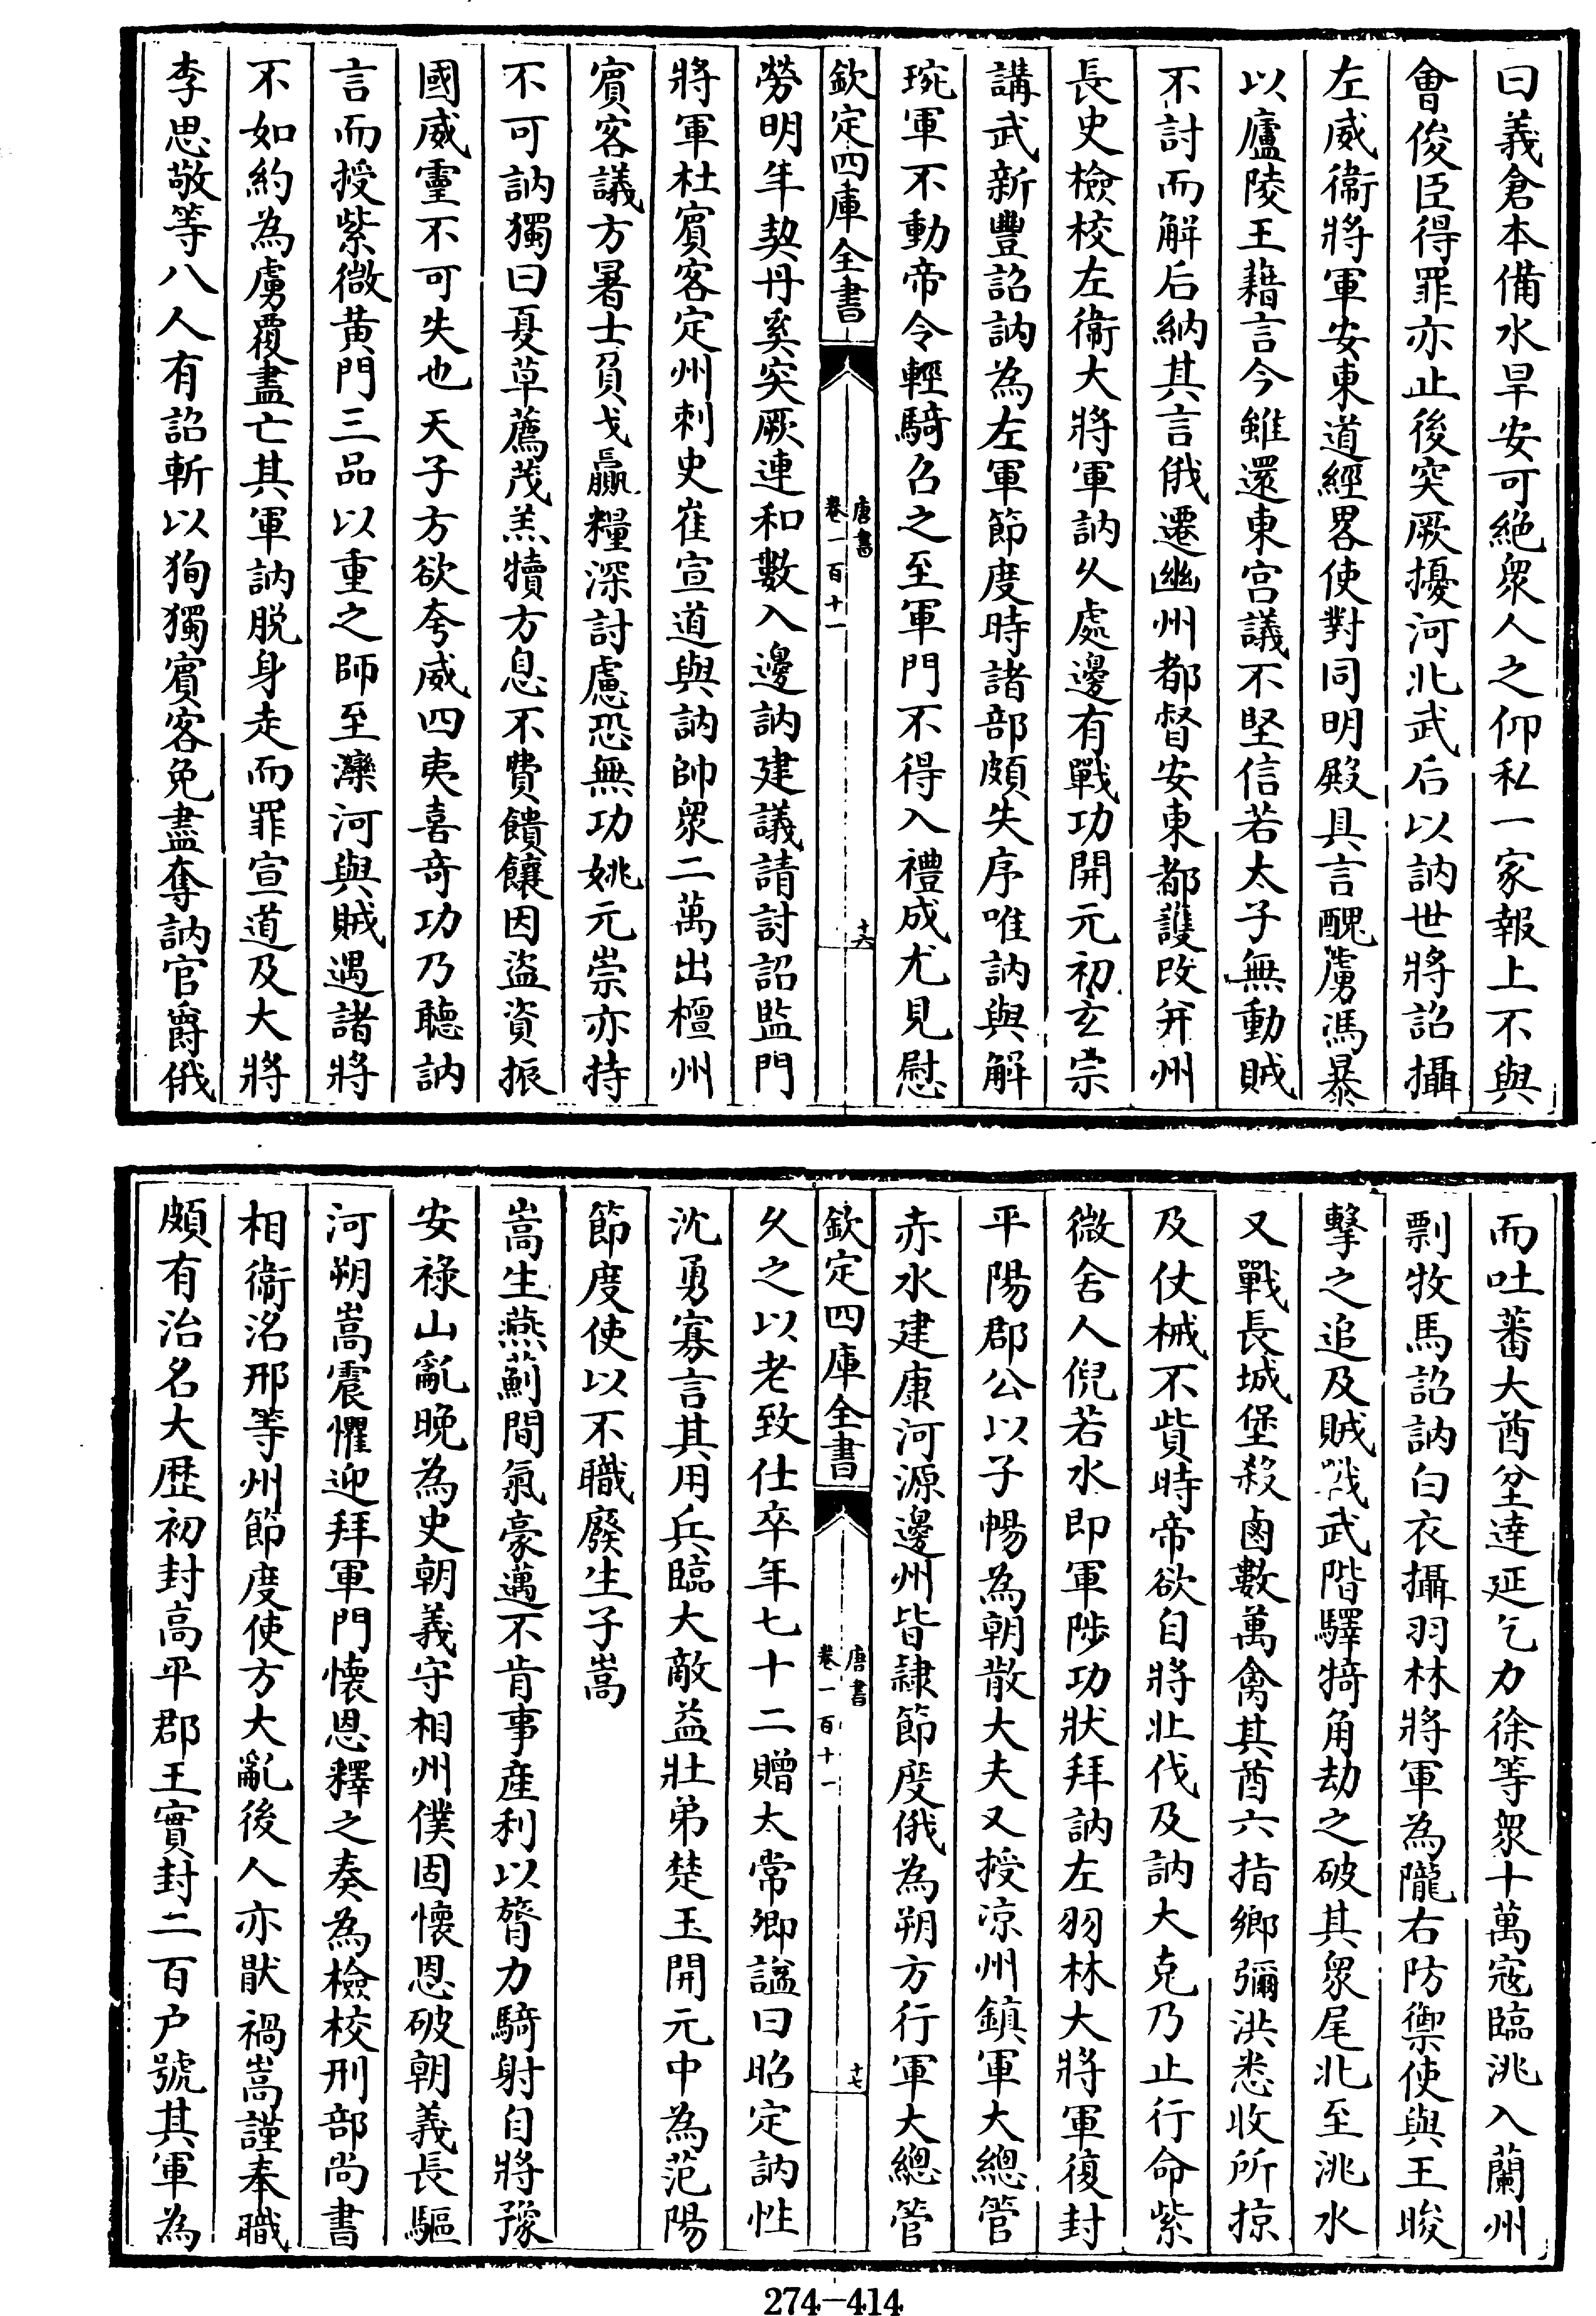 曰義倉本備水旱安可絶衆人之仰私一家報上不與
會俊臣得罪亦止後突厥擾河北武后以訥世將詔攝
左威衞將軍安東道經畧使對同明殿具言醜虜馮暴
以廬陵王藉言今雖還東宫議不堅信若太子無動賊
不討而解后納其言俄遷幽州都督安東都護改并州
長史檢校左衞大將軍訥久處邊有戰功開元初玄宗
講武新豐詔訥為左軍節度時諸部頗失序唯訥與解
琬軍不動帝令輕騎召之至軍門不得入禮成尤見慰
欽定四庫全書
唐書
卷一百十一
十六
勞明年契丹奚突厥連和數入邊訥建議請討詔監門
將軍杜賓客定州刺史崔宣道與訥帥衆二萬出檀州
賓客議方暑士負戈贏糧深討慮恐無功姚元崇亦持
不可訥獨曰夏草薦茂羔犢方息不費饋饟因盗資振
國威靈不可失也天子方欲夸威四夷喜奇功乃聽訥
言而授紫微黄門三品以重之師至灤河與賊遇諸將
不如約為虜覆盡亡其軍訥脱身走而罪宣道及大將
李思敬等八人有詔斬以狥獨賓客免盡奪訥官爵俄
而吐蕃大酋坌達延乞力徐等衆十萬寇臨洮入蘭州
剽牧馬詔訥白衣攝羽林將軍為隴右防禦使與王晙
擊之追及賊戰武階驛犄角劫之破其衆尾北至洮水
又戰長城堡殺鹵數萬禽其酋六指鄉彌洪悉收所掠
及仗械不貲時帝欲自將北伐及訥大克乃止行命紫
微舍人倪若水即軍陟功狀拜訥左羽林大將軍復封
平陽郡公以子暢為朝散大夫又授凉州鎮軍大總管
赤水建康河源邊州皆隷節度俄為朔方行軍大總管
欽定四庫全書
唐書
卷一百十一
十七
久之以老致仕卒年七十二贈太常卿諡曰昭定訥性
沈勇寡言其用兵臨大敵益壯弟楚玉開元中為范陽
節度使以不職廢生子嵩
嵩生燕薊間氣豪邁不肯事産利以膂力騎射自將豫
安禄山亂晩為史朝義守相州僕固懷恩破朝義長驅
河朔嵩震懼迎拜軍門懷恩釋之奏為檢校刑部尚書
相衞洺邢等州節度使方大亂後人亦猒禍嵩謹奉職
頗有治名大歴初封高平郡王實封二百户號其軍為
274-414